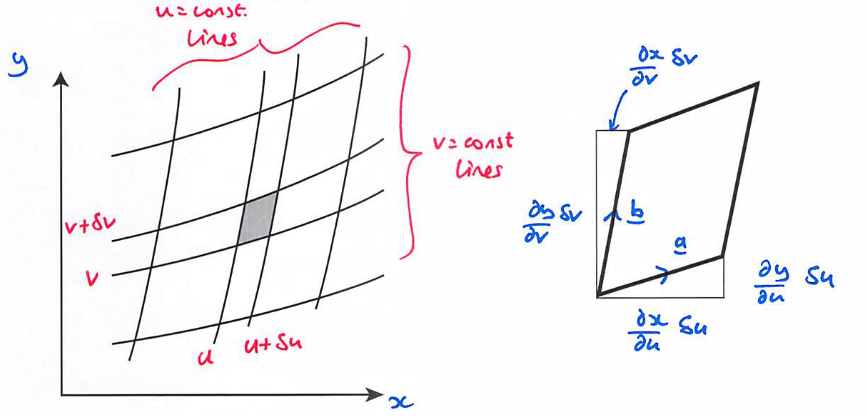 u = const.
lines
y
v = const
lines
v+δv
v
u
u+δu
x
∂x/∂v δv
∂y/∂v δv
b
a
∂y/∂u δu
∂x/∂u δu